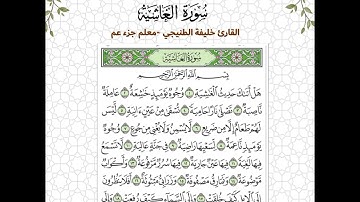 سُورَةُ الغَاشِيَة
القارئ خليفة الطنيجي -معلم جزء عم
سُورَةُ الغَاشِيَةِ
بِسْمِ اللَّهِ الرَّحْمَٰنِ الرَّحِيمِ
هَلْ أَتَىٰكَ حَدِيثُ الْغَٰشِيَةِ ١ وُجُوهٌ يَوْمَئِذٍ خَٰشِعَةٌ ٢ عَامِلَةٌ
نَّاصِبَةٌ ٣ تَصْلَىٰ نَارًا حَامِيَةً ٤ تُسْقَىٰ مِنْ عَيْنٍ ءَانِيَةٍ ٥ لَّيْسَ
لَهُمْ طَعَامٌ إِلَّا مِن ضَرِيعٍ ٦ لَّا يُسْمِنُ وَلَا يُغْنِي مِن جُوعٍ ٧ وُجُوهٌ
يَوْمَئِذٍ نَّاعِمَةٌ ٨ لِّسَعْيِهَا رَاضِيَةٌ ٩ فِي جَنَّةٍ عَالِيَةٍ ١٠ لَّا تَسْمَعُ
فِيهَا لَٰغِيَةً ١١ فِيهَا عَيْنٌ جَارِيَةٌ ١٢ فِيهَا سُرُرٌ مَّرْفُوعَةٌ ١٣ وَأَكْوَابٌ
مَّوْضُوعَةٌ ١٤ وَنَمَارِقُ مَصْفُوفَةٌ ١٥ وَزَرَابِيُّ مَبْثُوثَةٌ ١٦ أَفَلَا يَنظُرُونَ
إِلَى الْإِبِلِ كَيْفَ خُلِقَتْ ١٧ وَإِلَى السَّمَاءِ كَيْفَ رُفِعَتْ ١٨ وَإِلَى